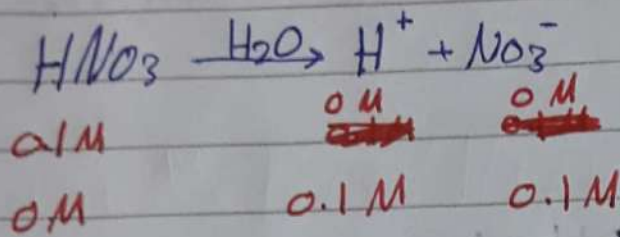 HNO3 H2O → H+ + NO3-
0.1M 0 M 0 M
0M 0.1 M 0.1 M